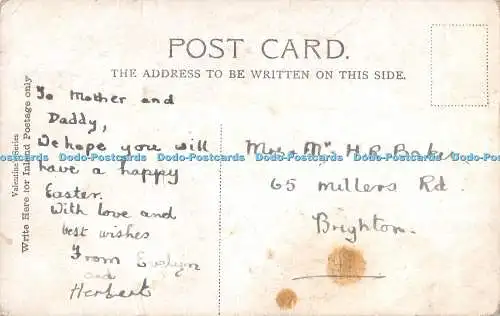 POST CARD.
THE ADDRESS TO BE WRITTEN ON THIS SIDE.
Valentine's Series
Write Here for Inland Postage only
To Mother and
Daddy,
We hope you will
have a happy
Easter.
With love and
best wishes
From Evelyn
and
Herbert
Mr & Mrs H. R. Baker
65 Millers Rd.
Brighton.
Dodo-Postcards Dodo-Postcards Dodo-Postcards Dodo-Postcards Dodo-Postcards